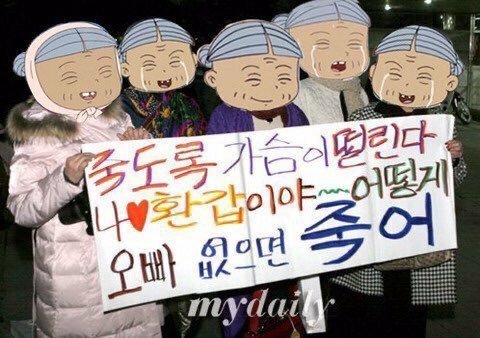 죽도록 가슴이 떨린다
나♥환갑이야~~ 어떻게
오빠 없으면 죽어
mydaily